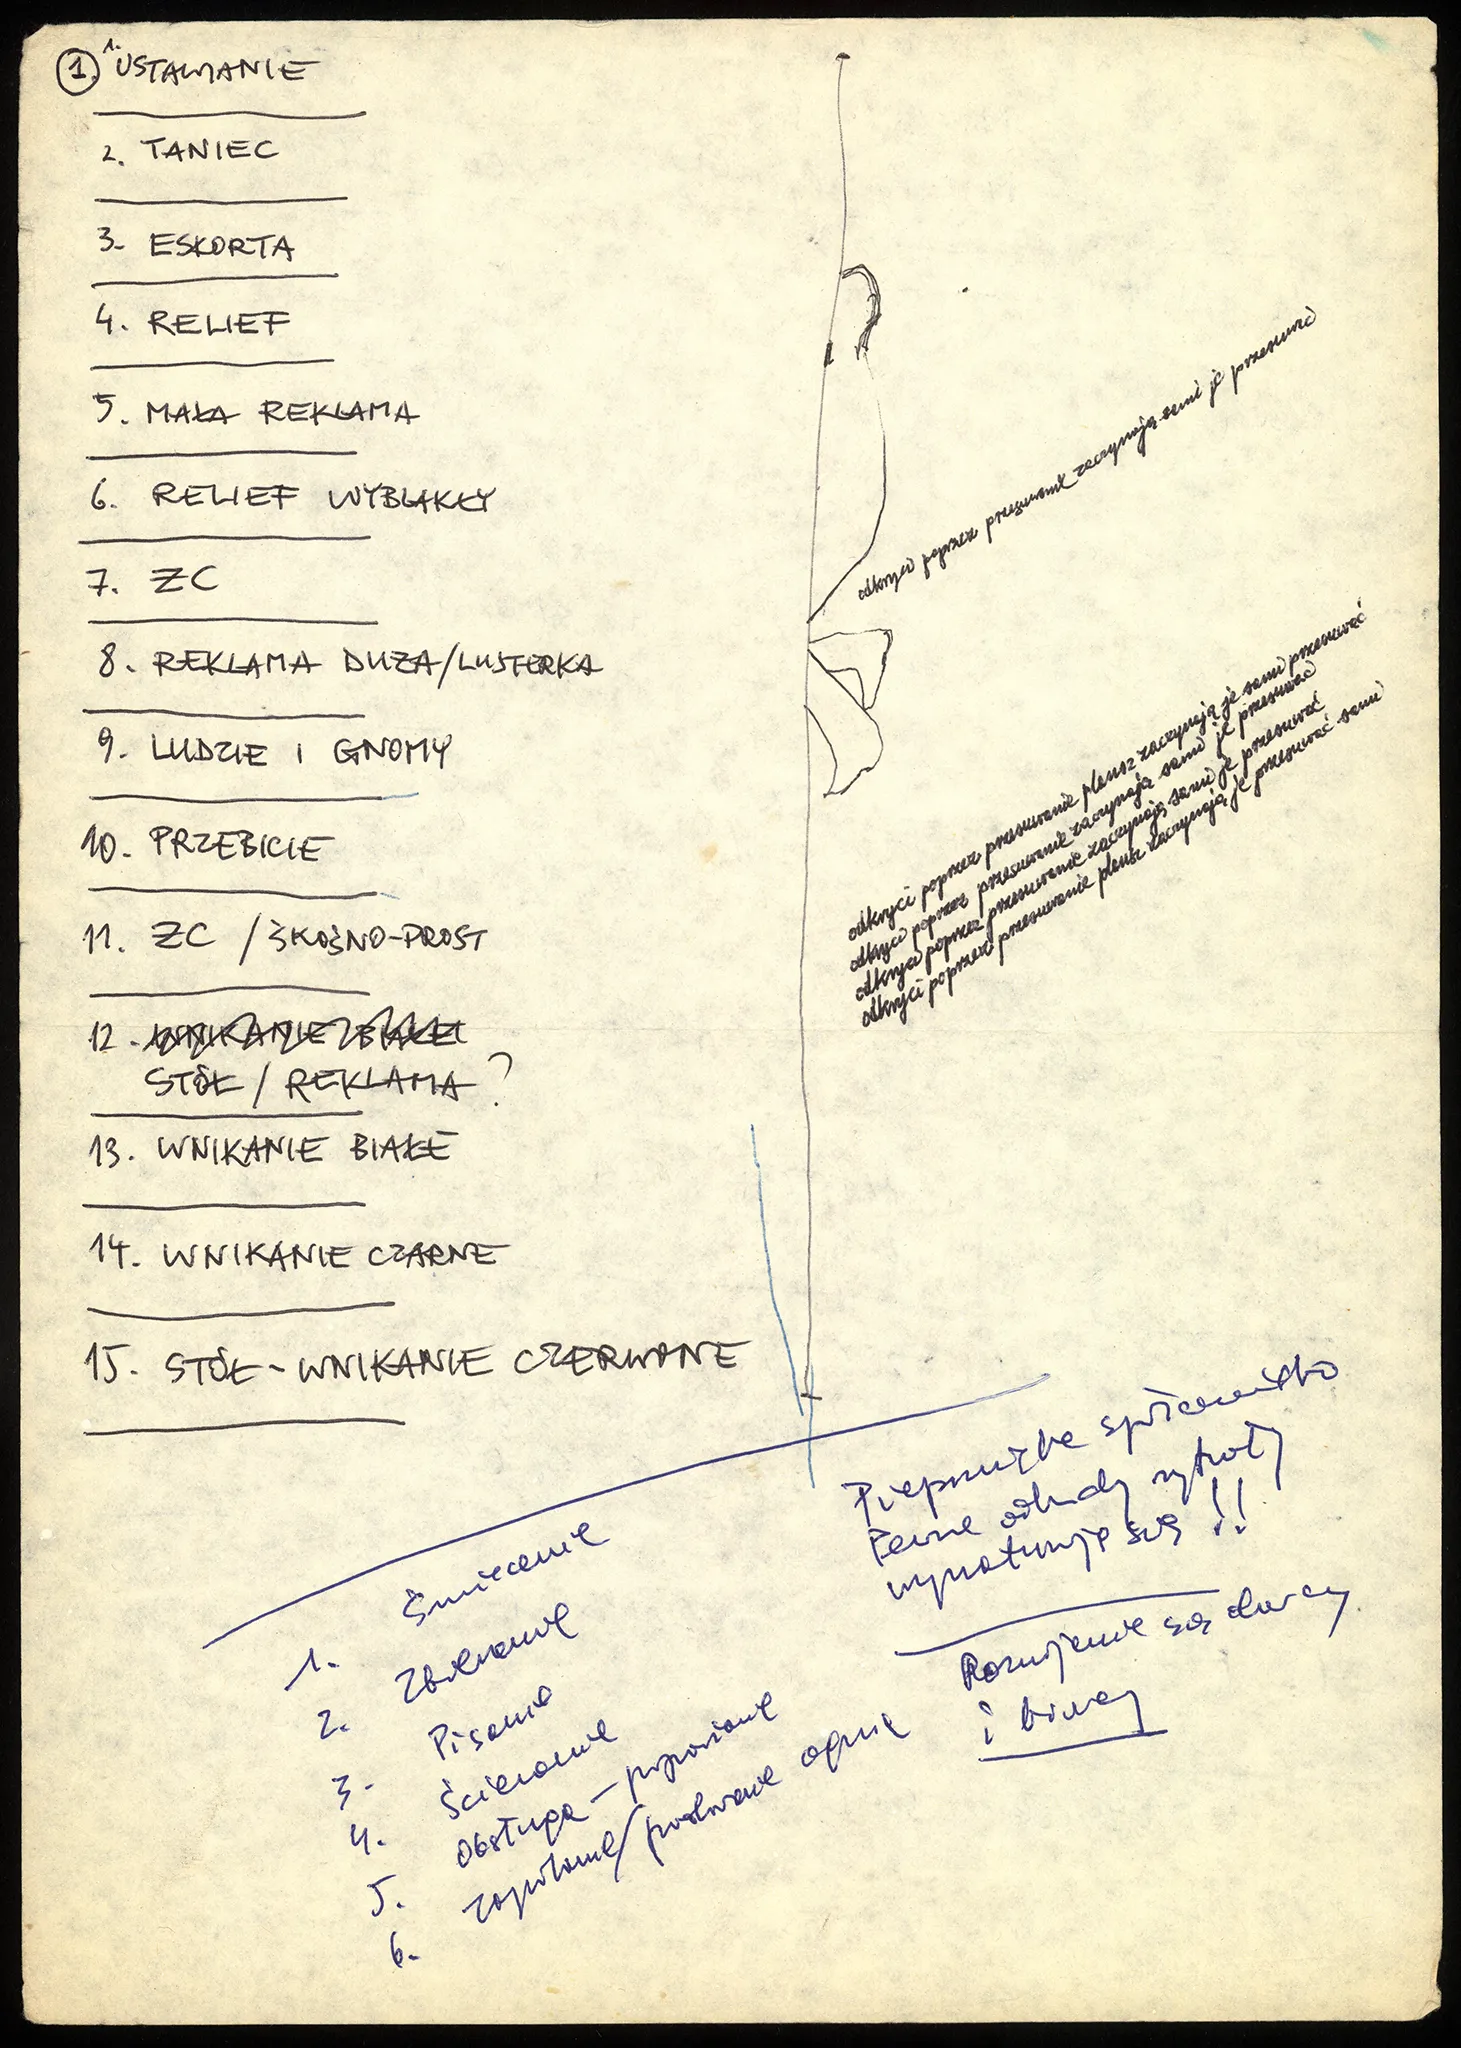 1. 1. USTAWIANIE
2. TANIEC
3. ESKORTA
4. RELIEF
5. MAŁA REKLAMA
6. RELIEF WYBLAKŁY
7. ZC
8. REKLAMA DUŻA/LUSTERKA
9. LUDZIE I GNOMY
10. PRZEBICIE
11. ZC / SKOŚNO-PROST
12. WNIKANIE BIAŁE
STÓŁ / REKLAMA ?
13. WNIKANIE BIAŁE
14. WNIKANIE CZARNE
15. STÓŁ - WNIKANIE CZERWONE
odkryci poprzez przesuwanie zaczynają sami je przesuwać
odkryci poprzez przesuwanie plansz zaczynają je sami przesuwać
odkryci poprzez przesuwanie zaczynają sami je przesuwać
odkryci poprzez przesuwanie zaczynają sami je przesuwać
odkryci poprzez przesuwanie plansz zaczynają je przesuwać sami
1. Śmiecenie
2. Zbieranie
3. Pisanie
4. Ścieranie
5. Obsługa -
6. zapalanie/podawanie ognia
się !!
są dawcy
i biorcy